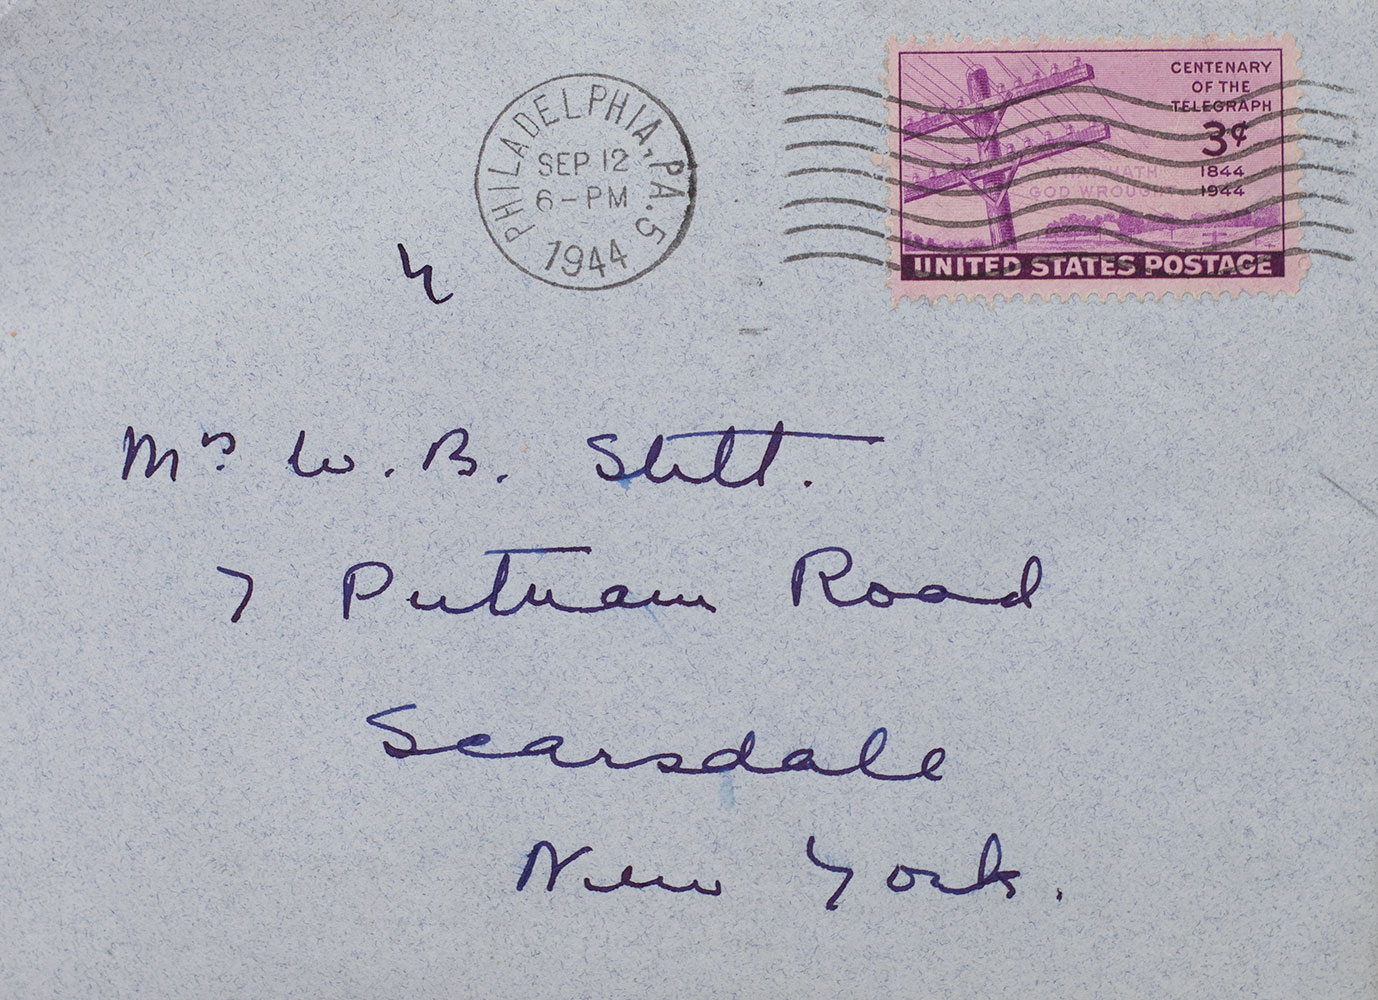 PHILADELPHIA, PA. 5
SEP 12
6-PM
1944
CENTENARY
OF THE
TELEGRAPH
3¢
1844
1944
WHAT HATH
GOD WROUGHT
UNITED STATES POSTAGE
Mrs W. B. Stitt.
7 Putnam Road
Scarsdale
New York.